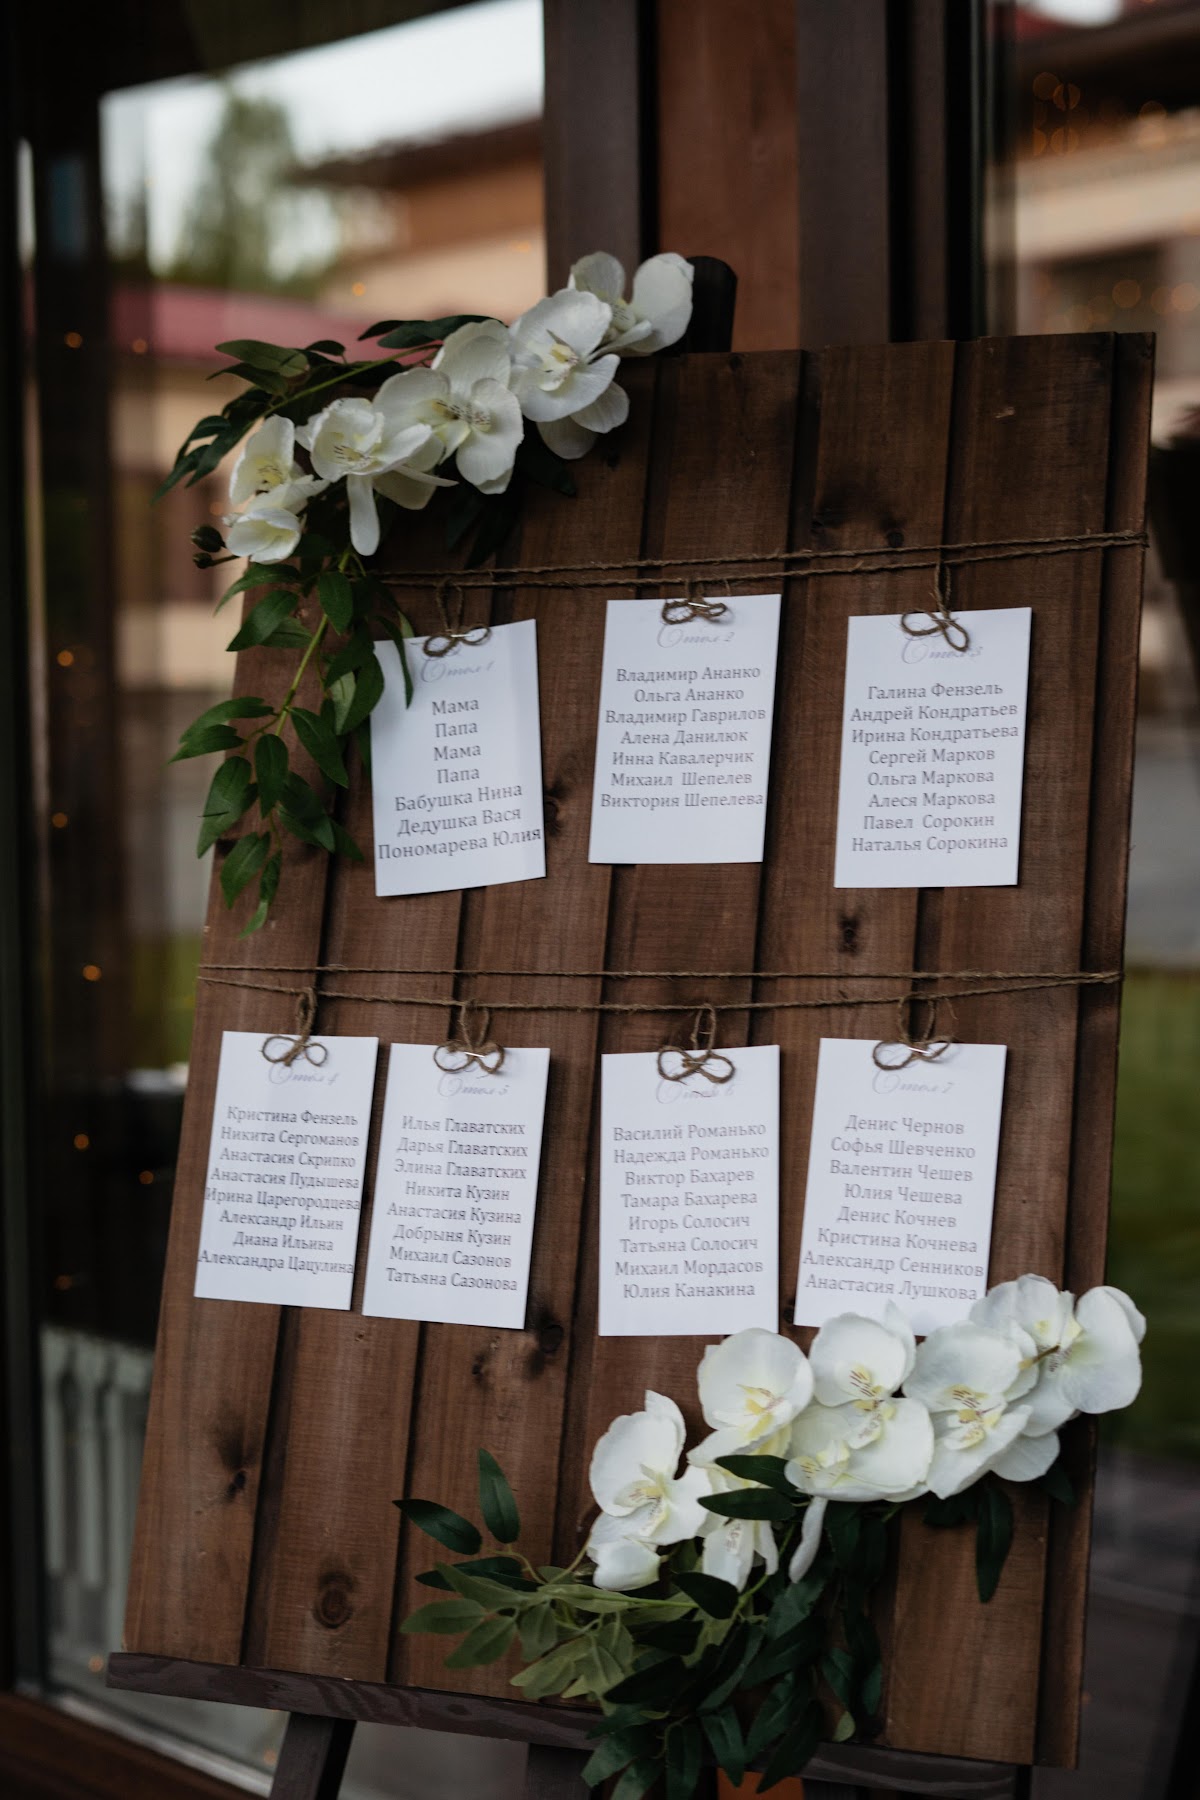 Стол 1
Мама
Папа
Мама
Папа
Бабушка Нина
Дедушка Вася
Пономарева Юлия
Стол 2
Владимир Ананко
Ольга Ананко
Владимир Гаврилов
Алена Данилюк
Инна Кавалерчик
Михаил Шепелев
Виктория Шепелева
Стол 3
Галина Фензель
Андрей Кондратьев
Ирина Кондратьева
Сергей Марков
Ольга Маркова
Алеся Маркова
Павел Сорокин
Наталья Сорокина
Стол 4
Кристина Фензель
Никита Сергоманов
Анастасия Скрипко
Анастасия Пудышева
Ирина Царегородцева
Александр Ильин
Диана Ильина
Александра Цацулина
Стол 5
Илья Главатских
Дарья Главатских
Элина Главатских
Никита Кузин
Анастасия Кузина
Добрыня Кузин
Михаил Сазонов
Татьяна Сазонова
Стол 6
Василий Романько
Надежда Романько
Виктор Бахарев
Тамара Бахарева
Игорь Солосич
Татьяна Солосич
Михаил Мордасов
Юлия Канакина
Стол 7
Денис Чернов
Софья Шевченко
Валентин Чешев
Юлия Чешева
Денис Кочнев
Кристина Кочнева
Александр Сенников
Анастасия Лушкова